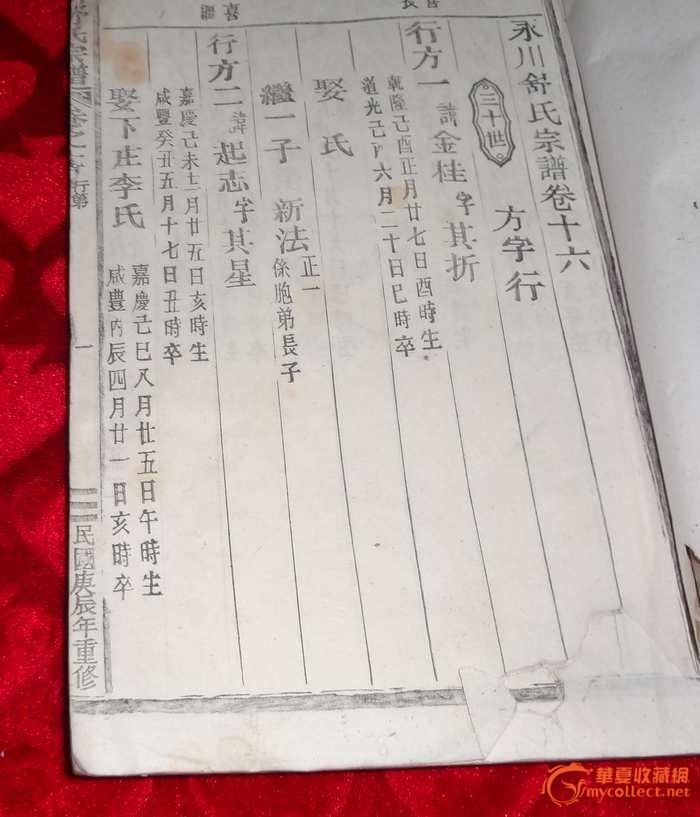 永川舒氏宗譜卷十六
三十世
方字行
長
行方一
諱金桂字其折
乾隆己酉正月廿七日酉時生
道光己 六月二十日巳時卒
娶氏
繼一子
新法
正一
係胞弟長子
喜
行方二
諱起志字其星
嘉慶己未十二月廿五日亥時生
咸豐癸丑五月十七日丑時卒
娶下庄李氏
嘉慶己巳八月廿五日午時生
咸豐丙辰四月廿一日亥時卒
舒氏宗譜
卷之十六
行第
一
民國庚辰年重修
華夏收藏網
mycollect.net